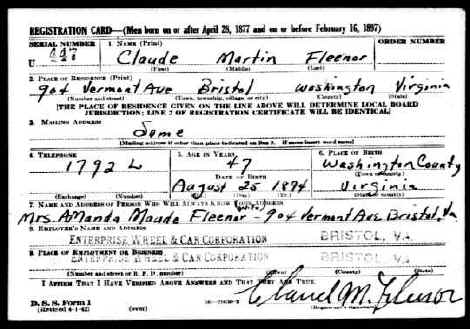 REGISTRATION CARD—(Men born on or after April 28, 1877 and on or before February 16, 1897)
SERIAL NUMBER 1. NAME (Print)
U Claude Martin Fleenor
(First) (Middle) (Last)
2. PLACE OF RESIDENCE (Print)
904 Vermont Ave Bristol Washington Virginia
(Number and street) (Town, township, village or city) (County) (State)
[THE PLACE OF RESIDENCE GIVEN ON THE LINE ABOVE WILL DETERMINE LOCAL BOARD
JURISDICTION; LINE 2 OF REGISTRATION CERTIFICATE WILL BE IDENTICAL]
3. MAILING ADDRESS
Same
[Mailing address if other than place indicated on line 2. If same insert word same]
4. TELEPHONE 5. AGE IN YEARS 6. PLACE OF BIRTH
1792 L 47 Washington County
DATE OF BIRTH (Town or county)
August 25 1894 Virginia
(Exchange) (Number) (Mo.) (Day) (Yr.) (State or country)
7. NAME AND ADDRESS OF PERSON WHO WILL ALWAYS KNOW YOUR ADDRESS
Mrs. Amanda Maude Fleenor - 904 Vermont Ave. Bristol, Va
8. EMPLOYER'S NAME AND ADDRESS
ENTERPRISE WHEEL & CAR CORPORATION BRISTOL, VA.
9. PLACE OF EMPLOYMENT OR BUSINESS
ENTERPRISE WHEEL & CAR CORPORATION BRISTOL, VA.
(Number and street or R. F. D. number) (Town) (County) (State)
I AFFIRM THAT I HAVE VERIFIED ABOVE ANSWERS AND THAT THEY ARE TRUE.
D. S. S. Form 1 Claude M. Fleenor
(Revised 4-1-42) (over)